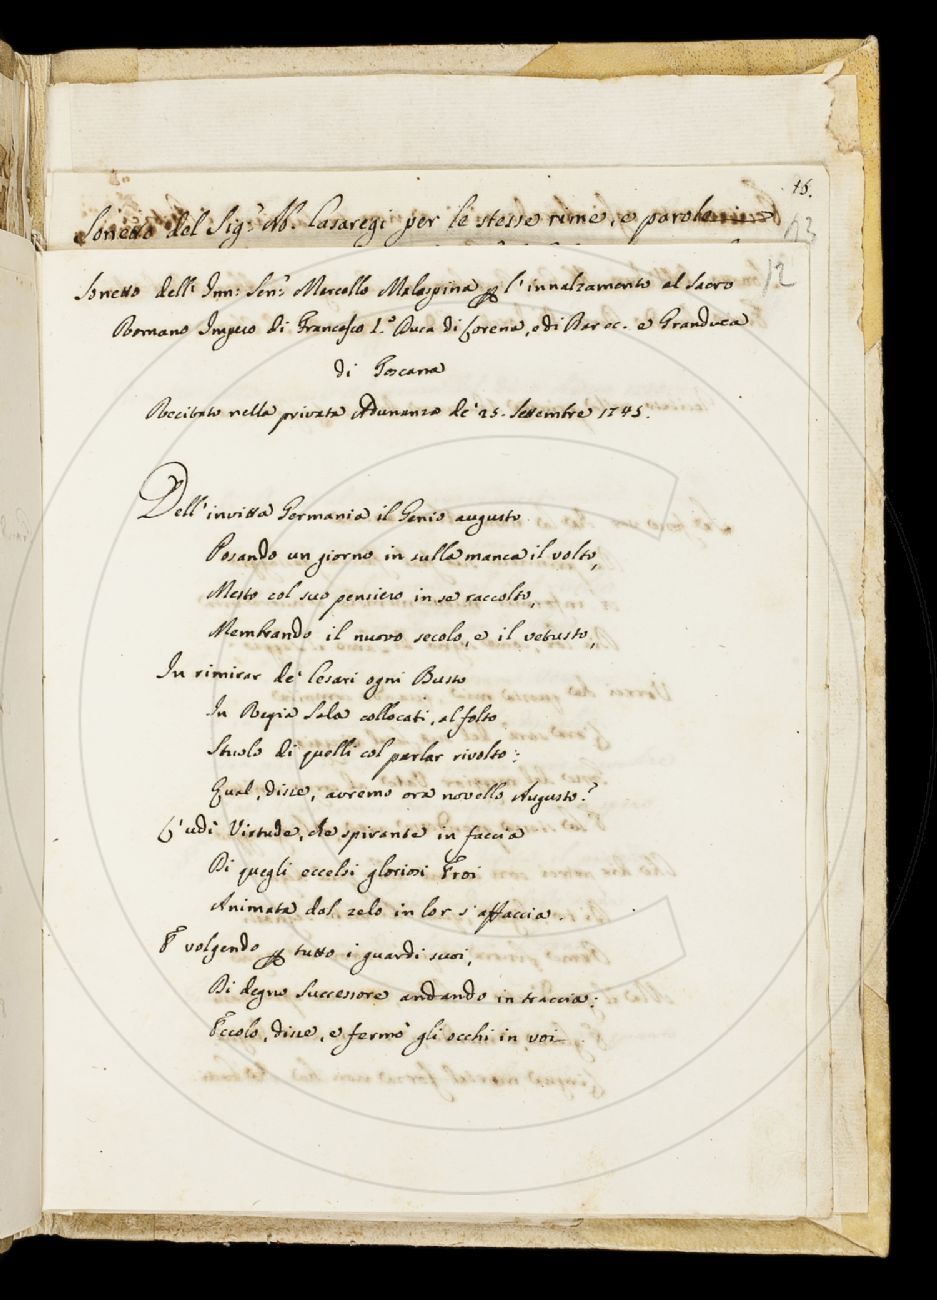 16.
Sonetto del Sig.r Ab. Casaregi per le stesse rime, e parole
13
12
Sonetto dell' Inn: Sen.r Marcello Malaspina p l'innalzamento al Sacro
Romano Impero di Francesco I.o Duca di Lorena, e di Bar ec. e Granduca
di Toscana
Recitato nella privata Adunanza de' 25. Settembre 1745.
Dell' invitta Germania il Genio augusto
Posando un giorno in sulla manca il volto,
Mesto col suo pensiero in se raccolto,
Membrando il nuovo secolo, e il vetusto,
In rimirar de' Cesari ogni Busto
In Regia Sala collocati, al folto
Stuolo di quelli col parlar rivolto:
Qual, disse, avremo ora novello Augusto?
L' udì Virtude, che spirante in faccia
Di quegli eccelsi gloriosi Eroi
Animata dal zelo in lor s' affaccia.
E volgendo p tutto i guardi suoi,
Di degno Successore andando in traccia:
Eccolo, disse, e fermò gli occhi in voi